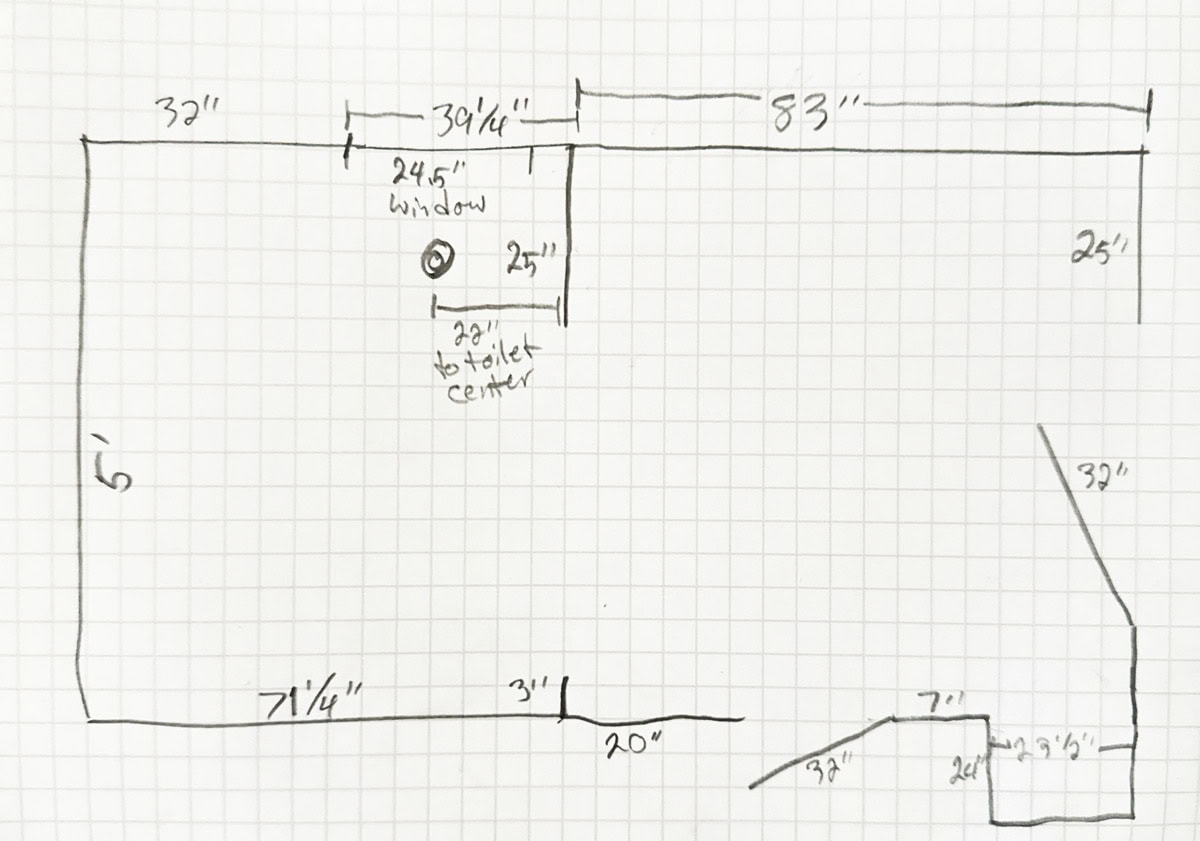 32"
39 1/4"
83"
24.5"
window
25"
25"
22"
to toilet
center
32"
71 1/4"
3"
7"
20"
32"
24"
23 1/2"